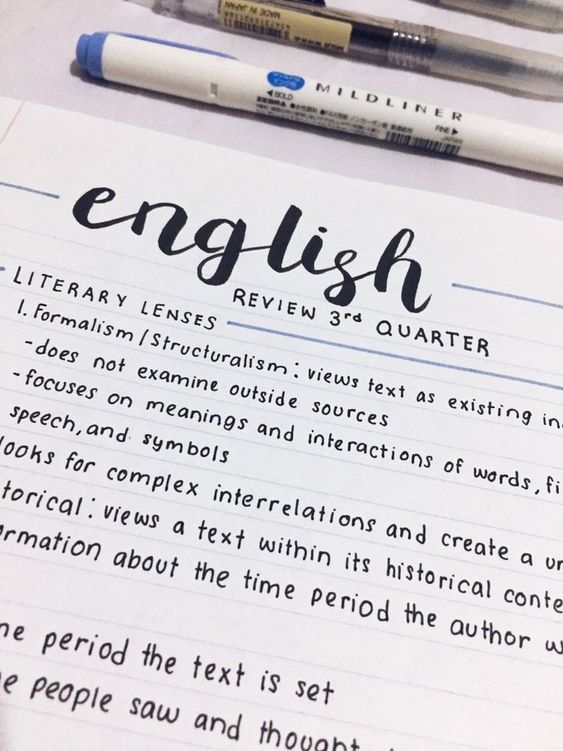 MADE IN JAPAN
MILDLINER
◀BOLD
FINE▶
ZEBRA
JAPAN
english
REVIEW 3rd QUARTER
LITERARY LENSES
1. Formalism/Structuralism: views text as existing in
-does not examine outside sources
-focuses on meanings and interactions of words, fi
speech, and symbols
looks for complex interrelations and create a un
torical: views a text within its historical conte
ormation about the time period the author w
ne period the text is set
e people saw and thought